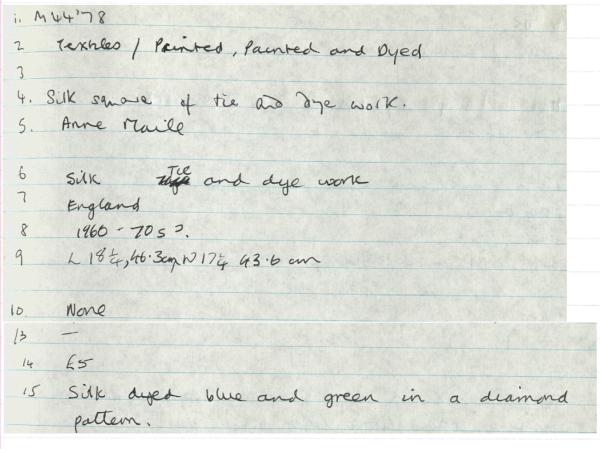 1. M44'78
2 Textiles / Printed, Painted and Dyed
3
4. Silk square of tie and dye work.
5. Anne Maile
6 Silk Tie and dye work
7 England
8 1960-70s?
9 L 18 1/4, 46.3cm W 17 1/4 43.6 cm
10 None
13 —
14 £5
15 Silk dyed blue and green in a diamond
pattern.